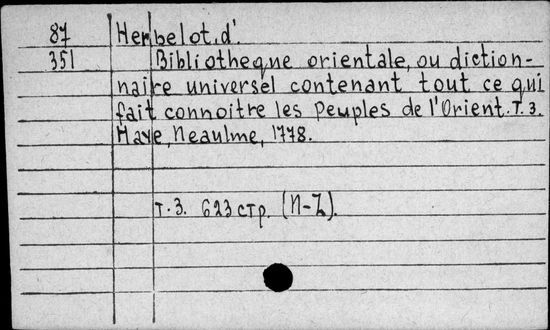 87 Herbelot, d'.
351 Bibliotheque orientale, ou diction-
naire universel contenant tout ce qui
fait connoitre les peuples de l'Orient. T. 3.
Haye, Neaulme, 1778.
т. 3. 623 стр. (N-Z).